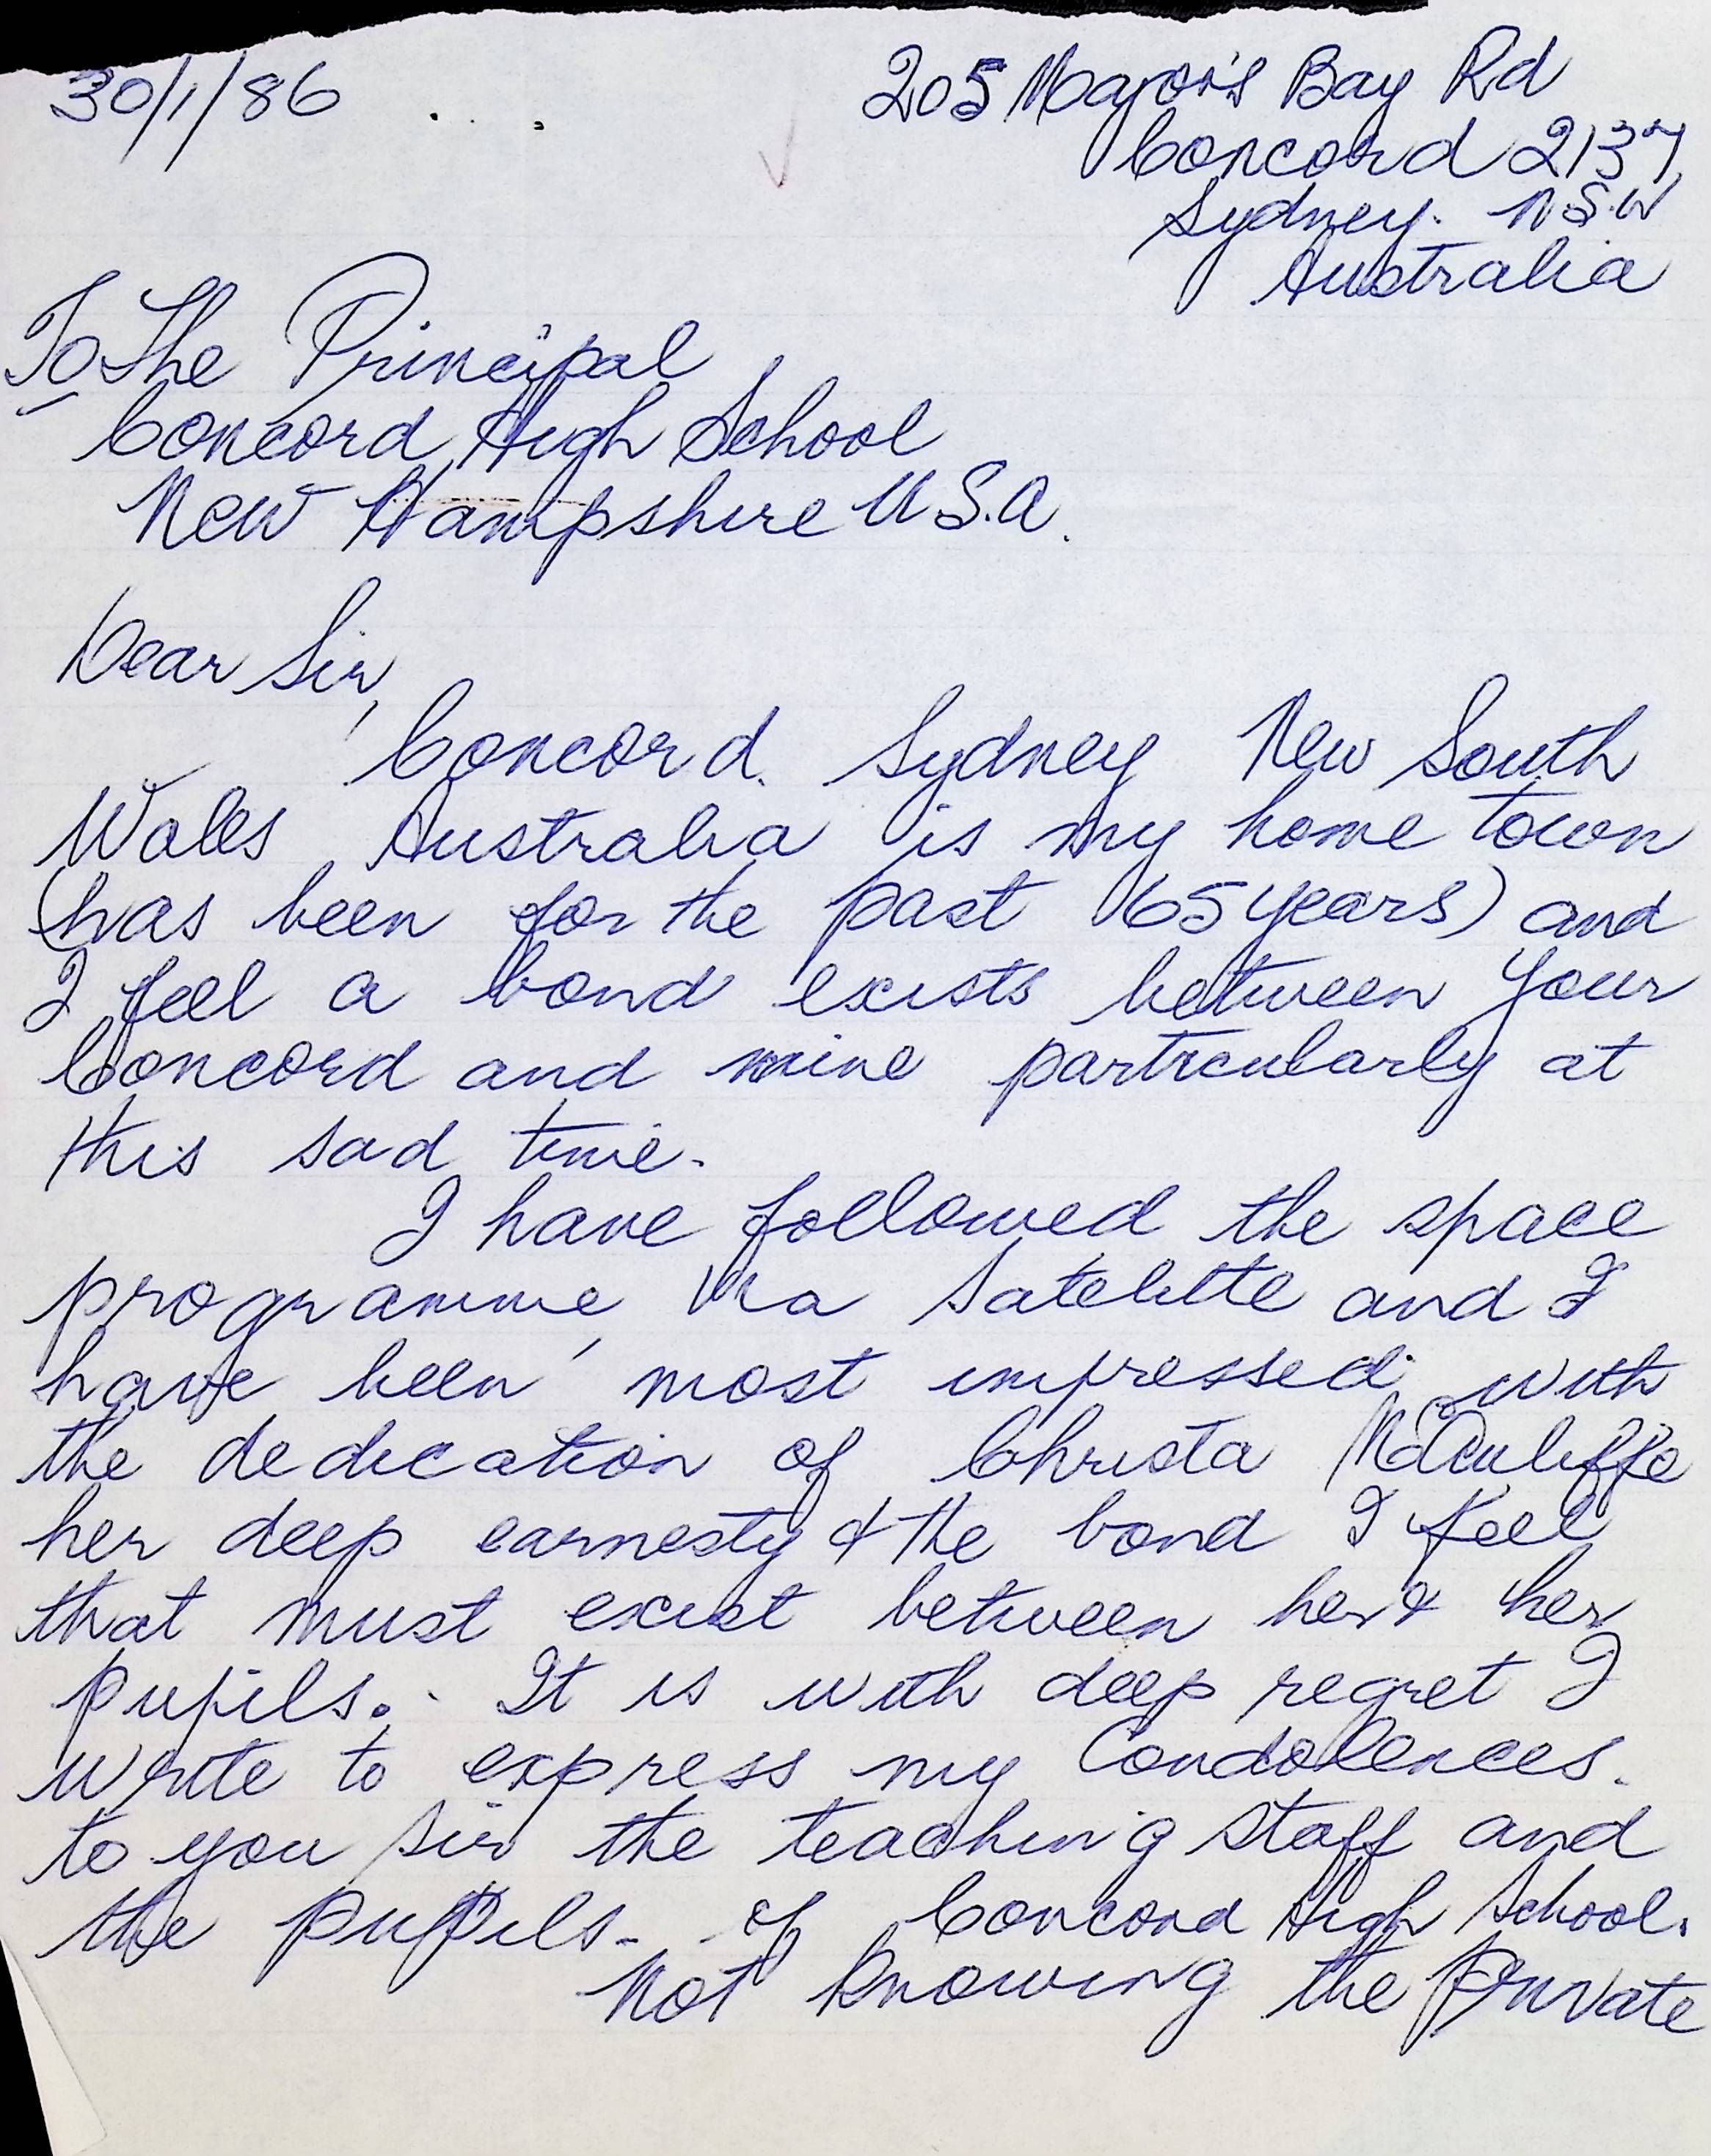 30/1/86
205 Major's Bay Rd
Concord 2137
Sydney. N.S.W
Australia
To The Principal
Concord High School
New Hampshire U.S.A.
Dear Sir,
Concord. Sydney New South
Wales Australia is my home town
(has been for the past 65 years) and
I feel a bond exists between your
Concord and mine particularly at
this sad time.
I have followed the space
programme, via Satelitte and I
have been most impressed with
the dedication of Christa McAuliffe
her deep earnesty & the bond I feel
that must exist between her & her
pupils. It is with deep regret I
write to express my Condolences.
to you sir the teaching staff and
the pupils - of Concord High School.
Not knowing the private